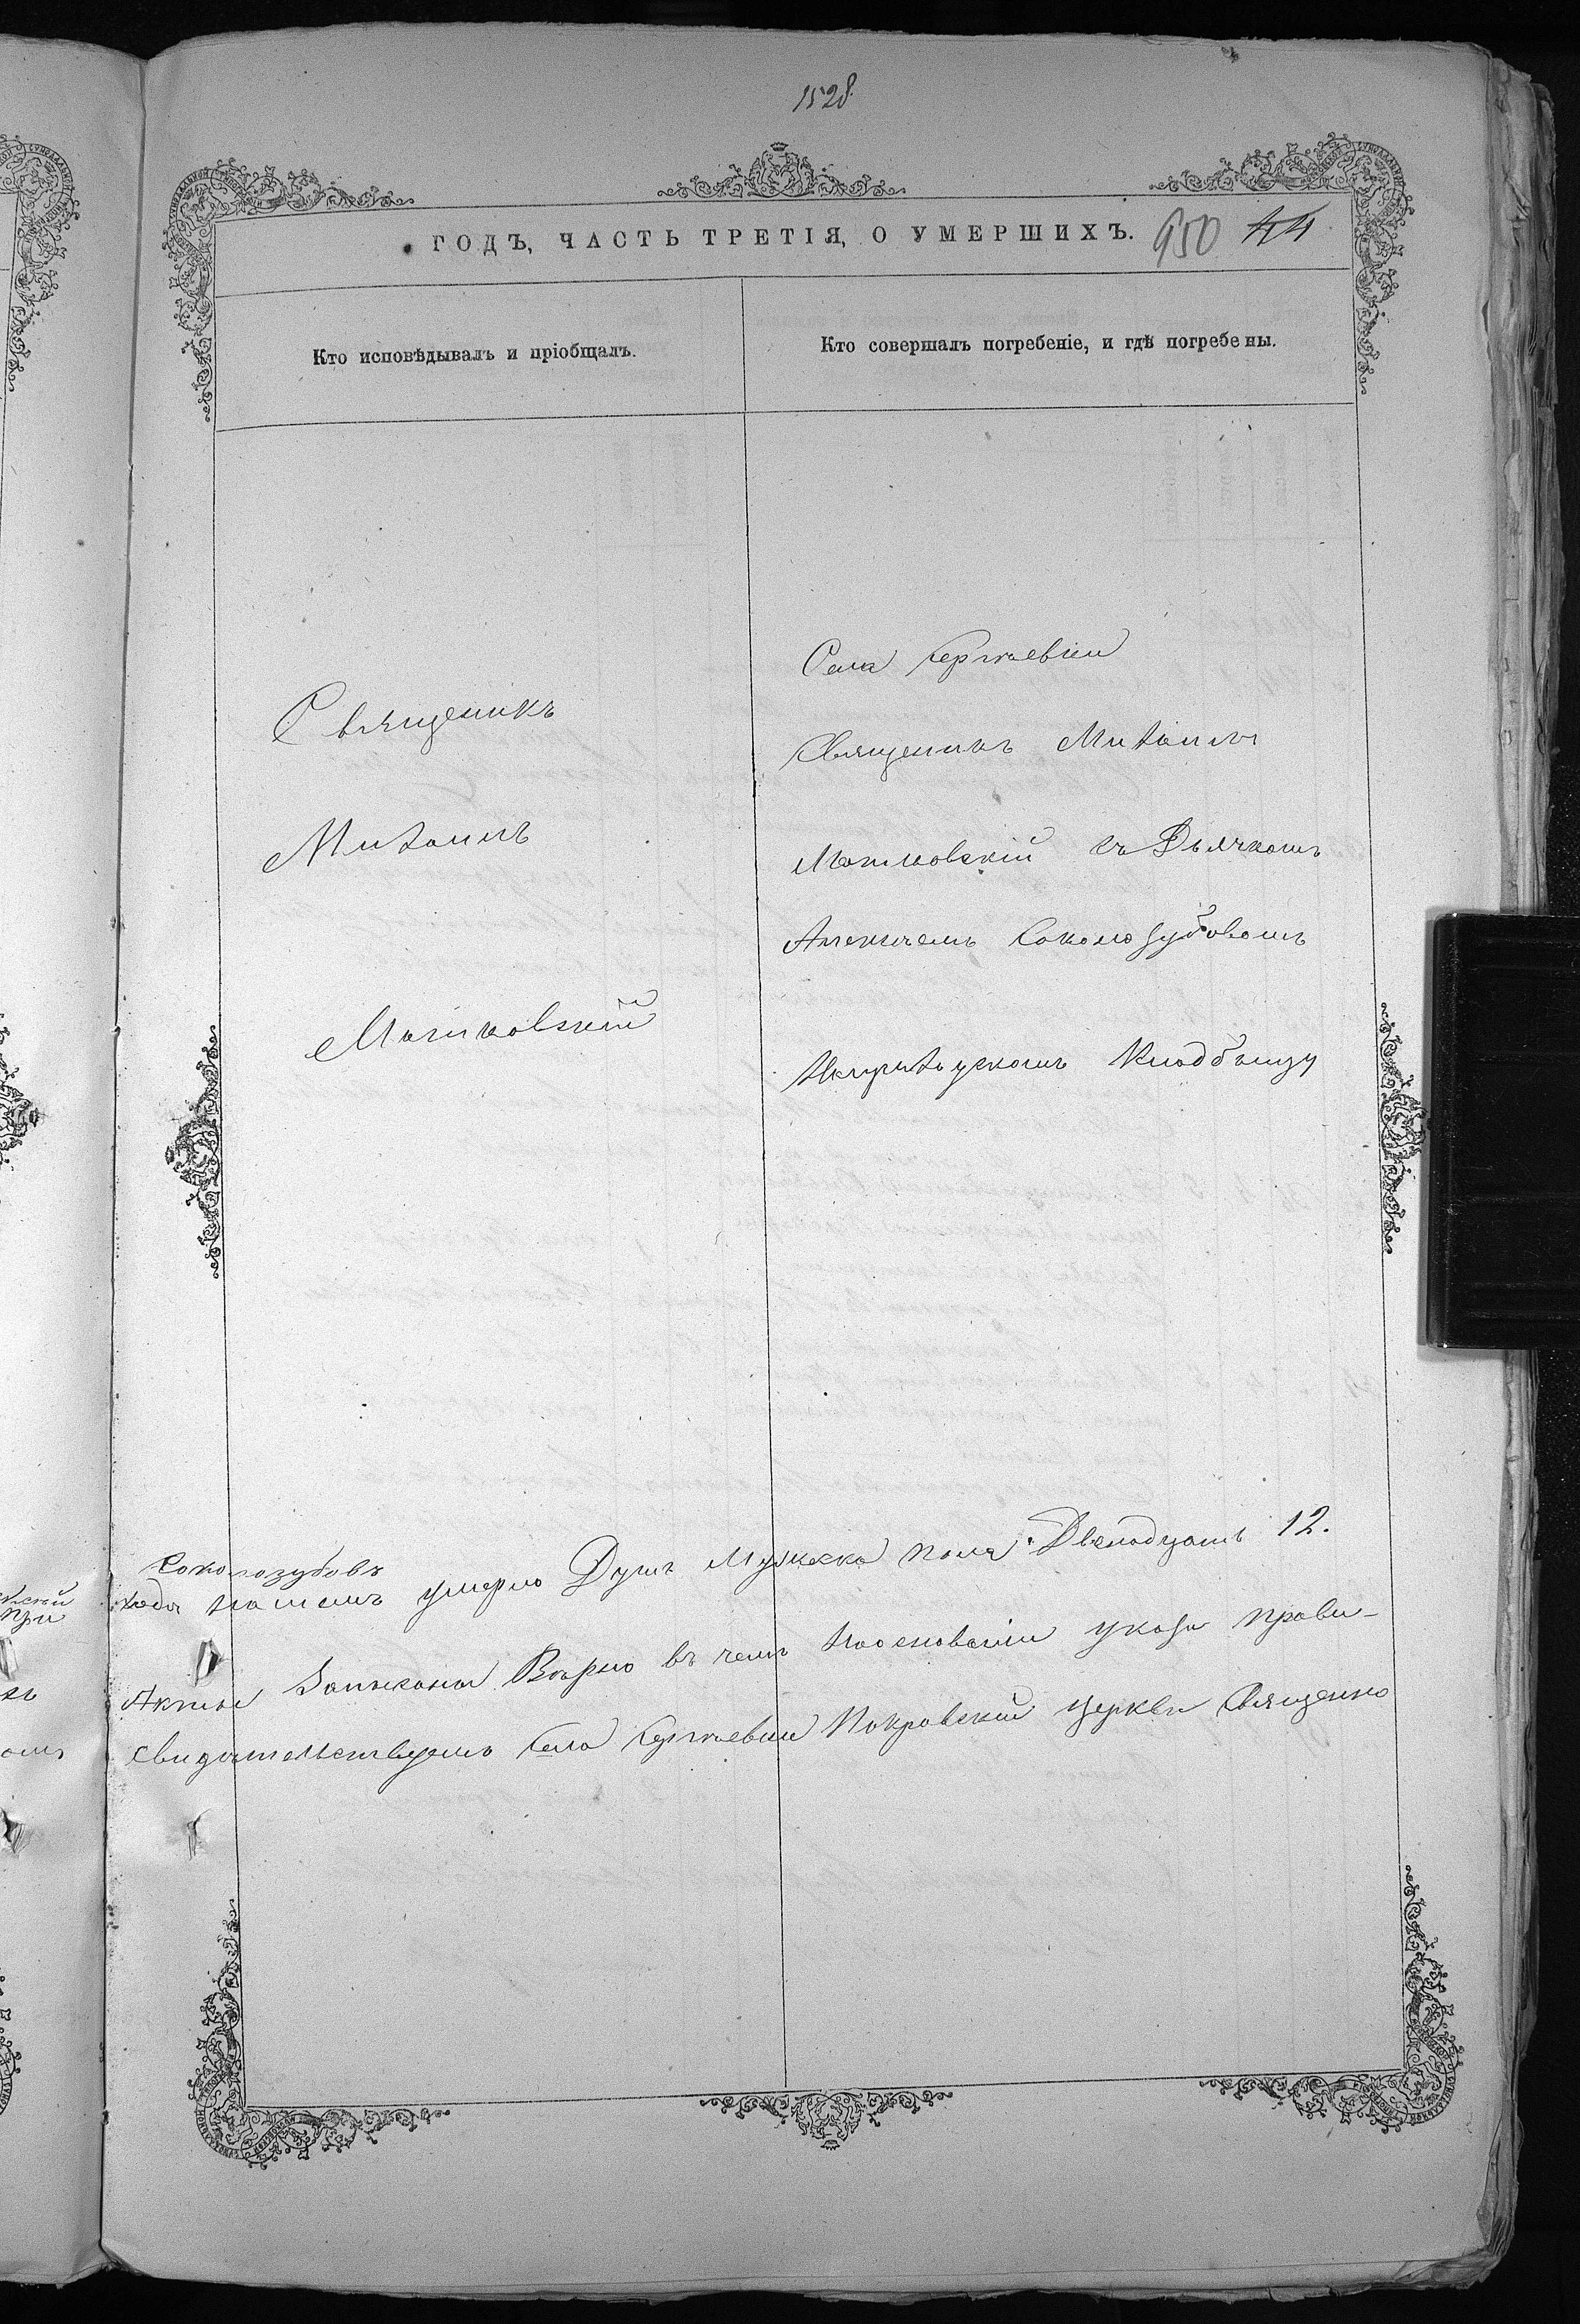 1528
ГОДЪ, ЧАСТЬ ТРЕТІЯ, О УМЕРШИХЪ. 950 44
Кто исповѣдывалъ и пріобщалъ.
Кто совершалъ погребеніе, и гдѣ погребены.
Священикъ
Михаилъ
Матковскій
Села Сергіевки
Священикъ Михаилъ
Матковскій съ Дьячкомъ
Алексѣемъ Соколозубовомъ
Кладбищу
Соколозубовъ
года нашемъ умерло Душъ Мужеска пола Двенадцать 12.
Акты Записана Вѣрно въ чемъ Наоснованіи указа Прави-
свидѣтельствуемъ Села Сергіевки Покровской Церкви Священно